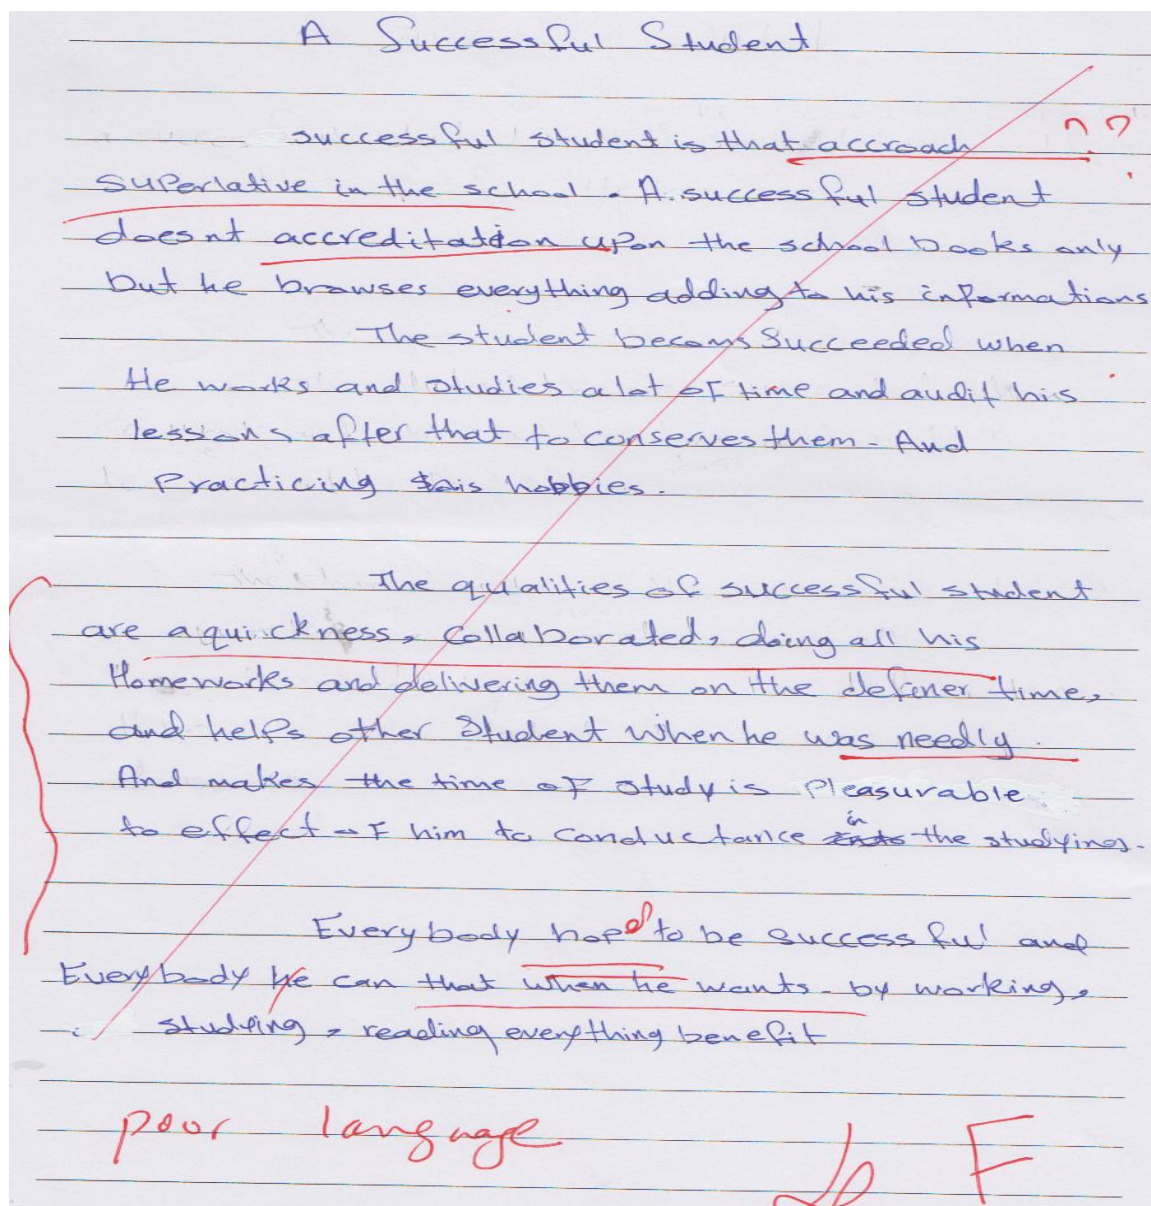 A Successful Student
? ?
successful student is that accroach
superlative in the school. A successful student
doesnt accreditation upon the school books only
but he browses everything adding to his informations
The student becoms Succeeded when
He works and studies a lot of time and audit his
lessons after that to conserves them. And
Practicing his hobbies.
The qualities of successful student
are a quickness, collaborated, doing all his
Homeworks and delivering them on the definer time,
and helps other Student when he was needly.
And makes the time of study is Pleasurable
to effect of him to conductance in the studying.
Everybody hop to be successful and
Everybody he can that when he wants. by working,
studying, reading everything benefit
poor language
F